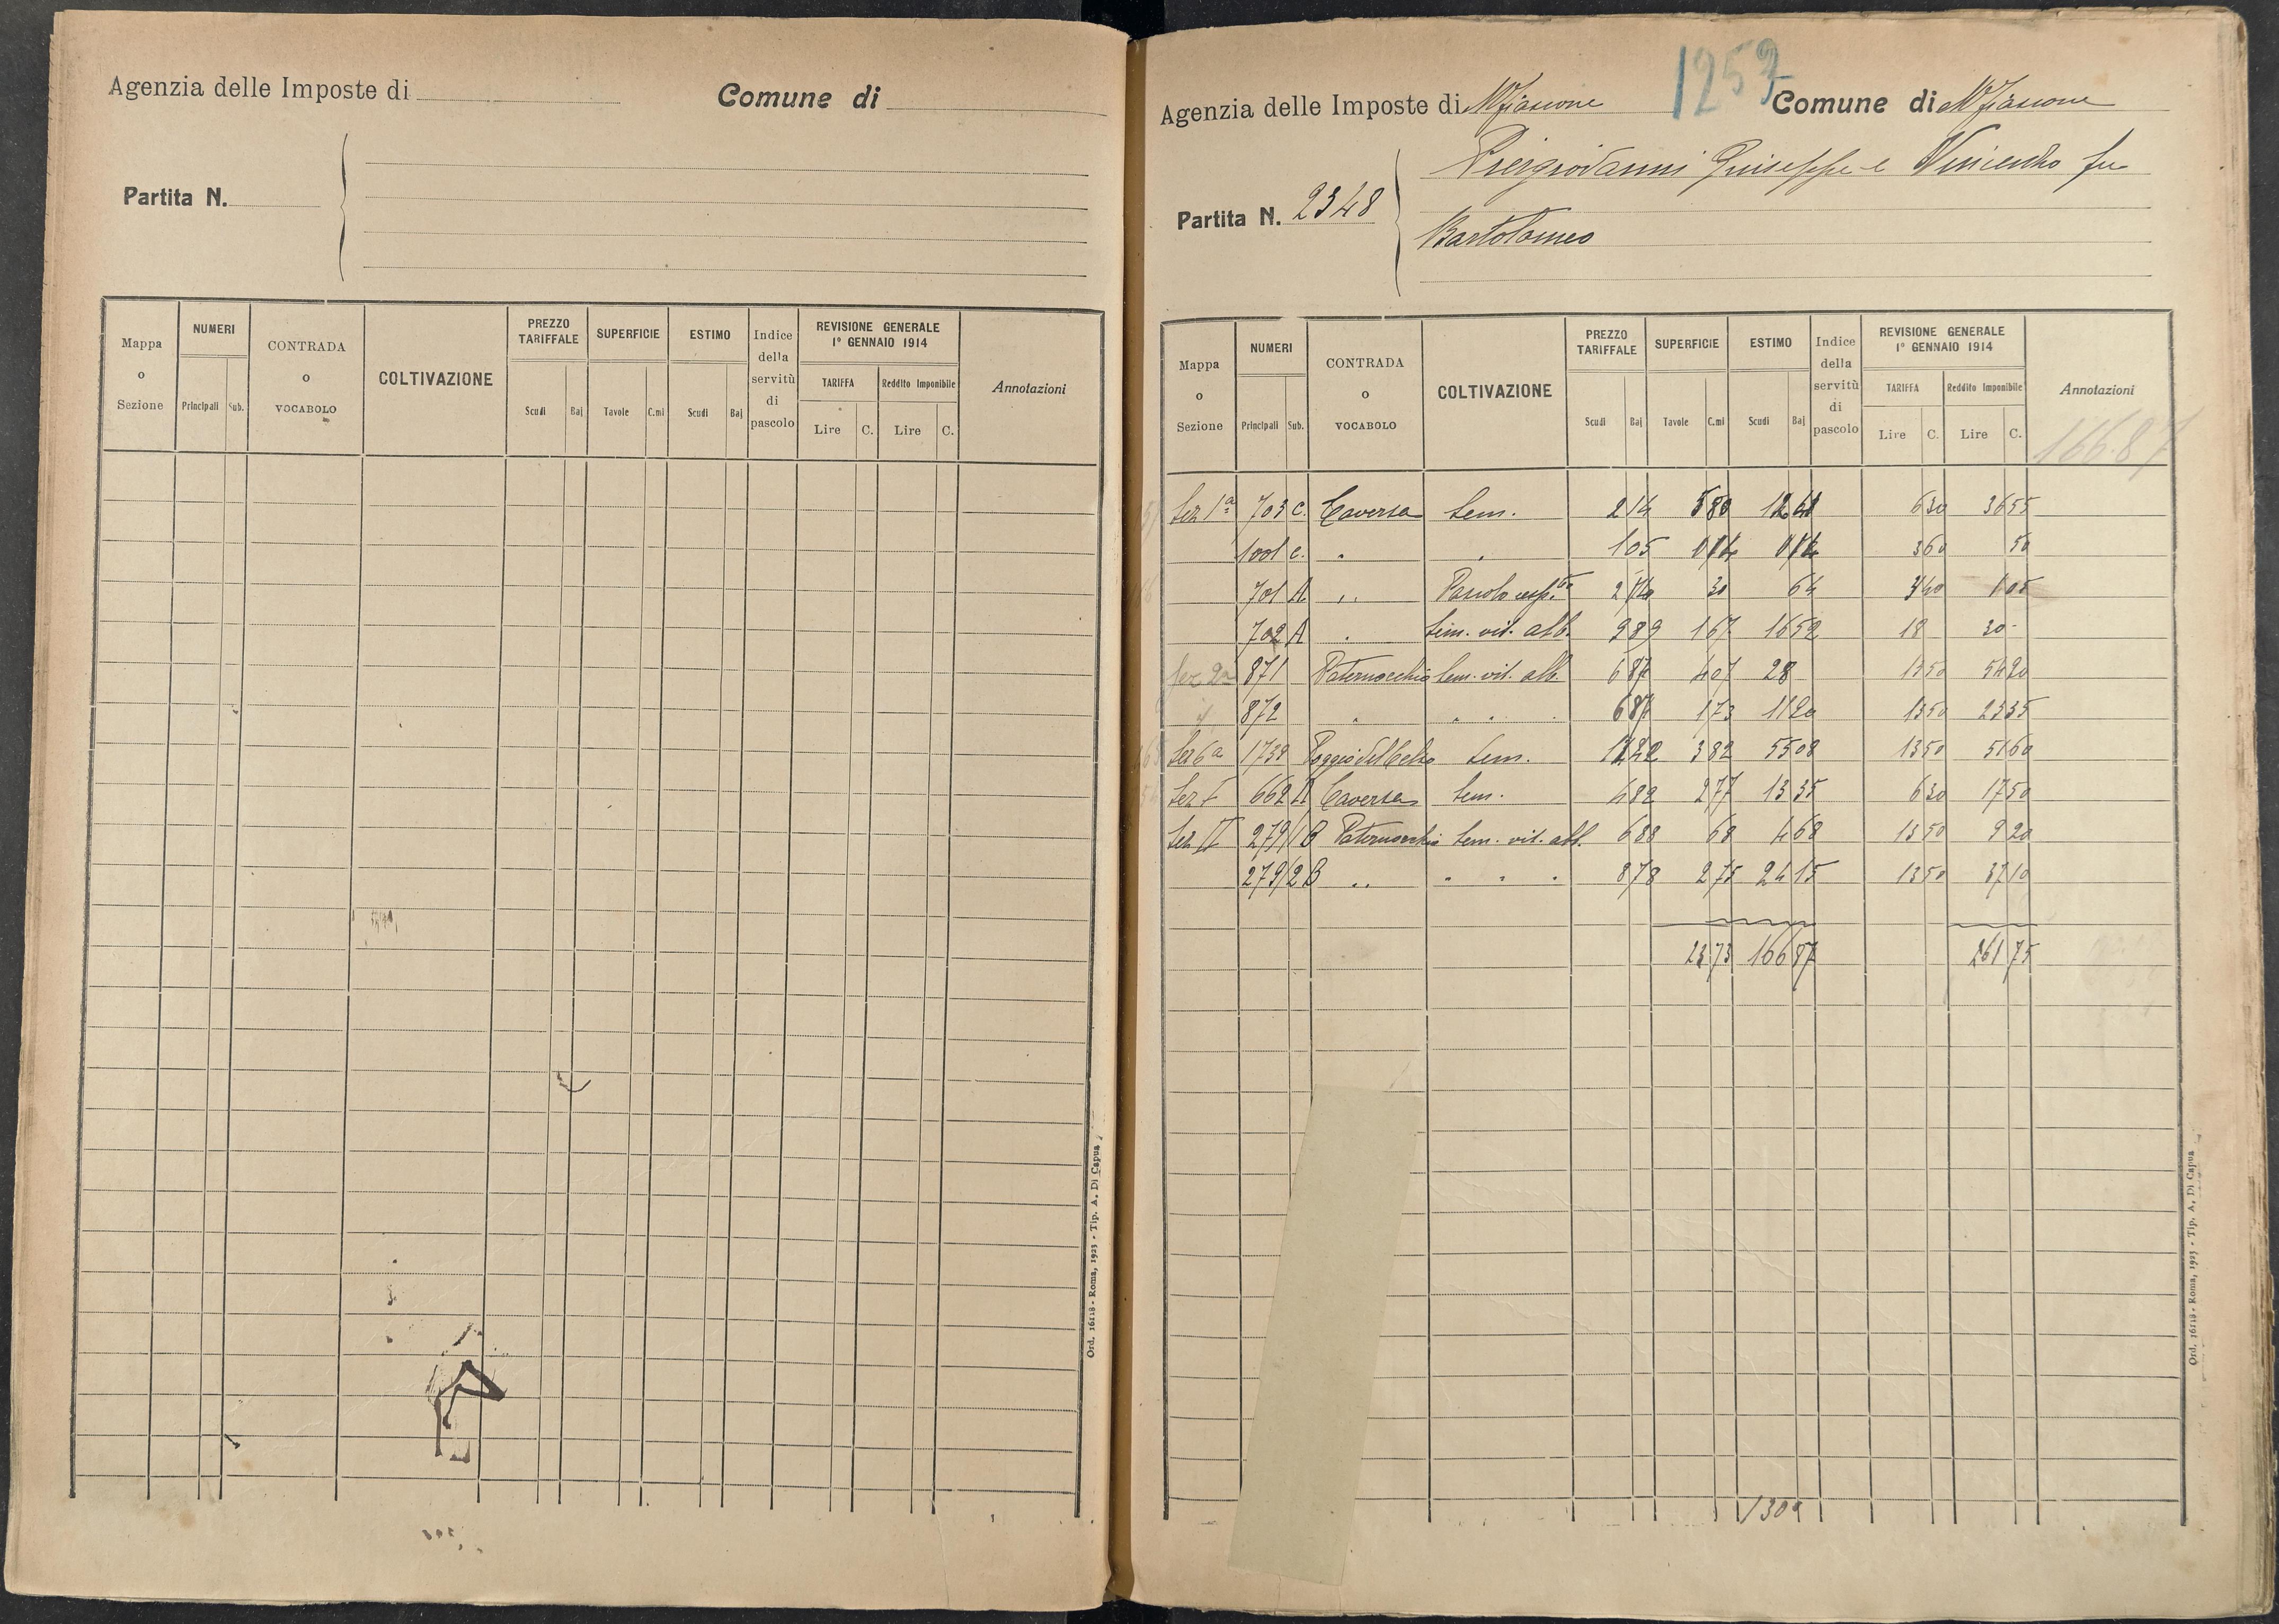 Agenzia delle Imposte di
Comune di
Partita N.
Mappa o Sezione
NUMERI
Principali Sub.
CONTRADA o VOCABOLO
COLTIVAZIONE
PREZZO TARIFFALE
Scudi Baj
SUPERFICIE
Tavole C.mi
ESTIMO
Scudi Baj
Indice della servitù di pascolo
REVISIONE GENERALE 1° GENNAIO 1914
TARIFFA
Lire C.
Reddito Imponibile
Lire C.
Annotazioni
Ord. 16118 - Roma, 1923 - Tip. A. Di Capua
1257
Agenzia delle Imposte di Mfiascone
Comune di Mfiascone
Partita N. 2348
Piergiovanni Giuseppe e Vincenzo fu
Bartolomeo
Mappa o Sezione
NUMERI
Principali Sub.
CONTRADA o VOCABOLO
COLTIVAZIONE
PREZZO TARIFFALE
Scudi Baj
SUPERFICIE
Tavole C.mi
ESTIMO
Scudi Baj
Indice della servitù di pascolo
REVISIONE GENERALE 1° GENNAIO 1914
TARIFFA
Lire C.
Reddito Imponibile
Lire C.
Annotazioni
166.87
Sez 1a 703 c. Caversa Sem. 2 14 5 80 12 41 6 30 36 55
1001 c. " " 1 05 3 60 50
701 A " Pascolo 30 64 3 40 1 05
702 A " Sem. vit. alb. 9 89 1 67 16 52 18 30 -
Sez 2a 871 Paternocchio Sem. vit. alb. 6 87 4 07 28 13 50 54 20
872 " " " 6 87 1 73 11 20 13 50 23 35
Sez 6a 1739 Sem. 3 82 55 08 13 50 51 60
Sez I 662 A Caversa Sem. 4 82 2 77 13 35 6 30 17 50
Sez II 279/1 B Paternocchio Sem. vit. alb. 6 88 68 4 68 13 50 9 20
279/2 B " " " " 8 78 2 75 24 15 13 50 37 10
23 73 166 87 261 75
1309
Ord. 16118 - Roma, 1923 - Tip. A. Di Capua